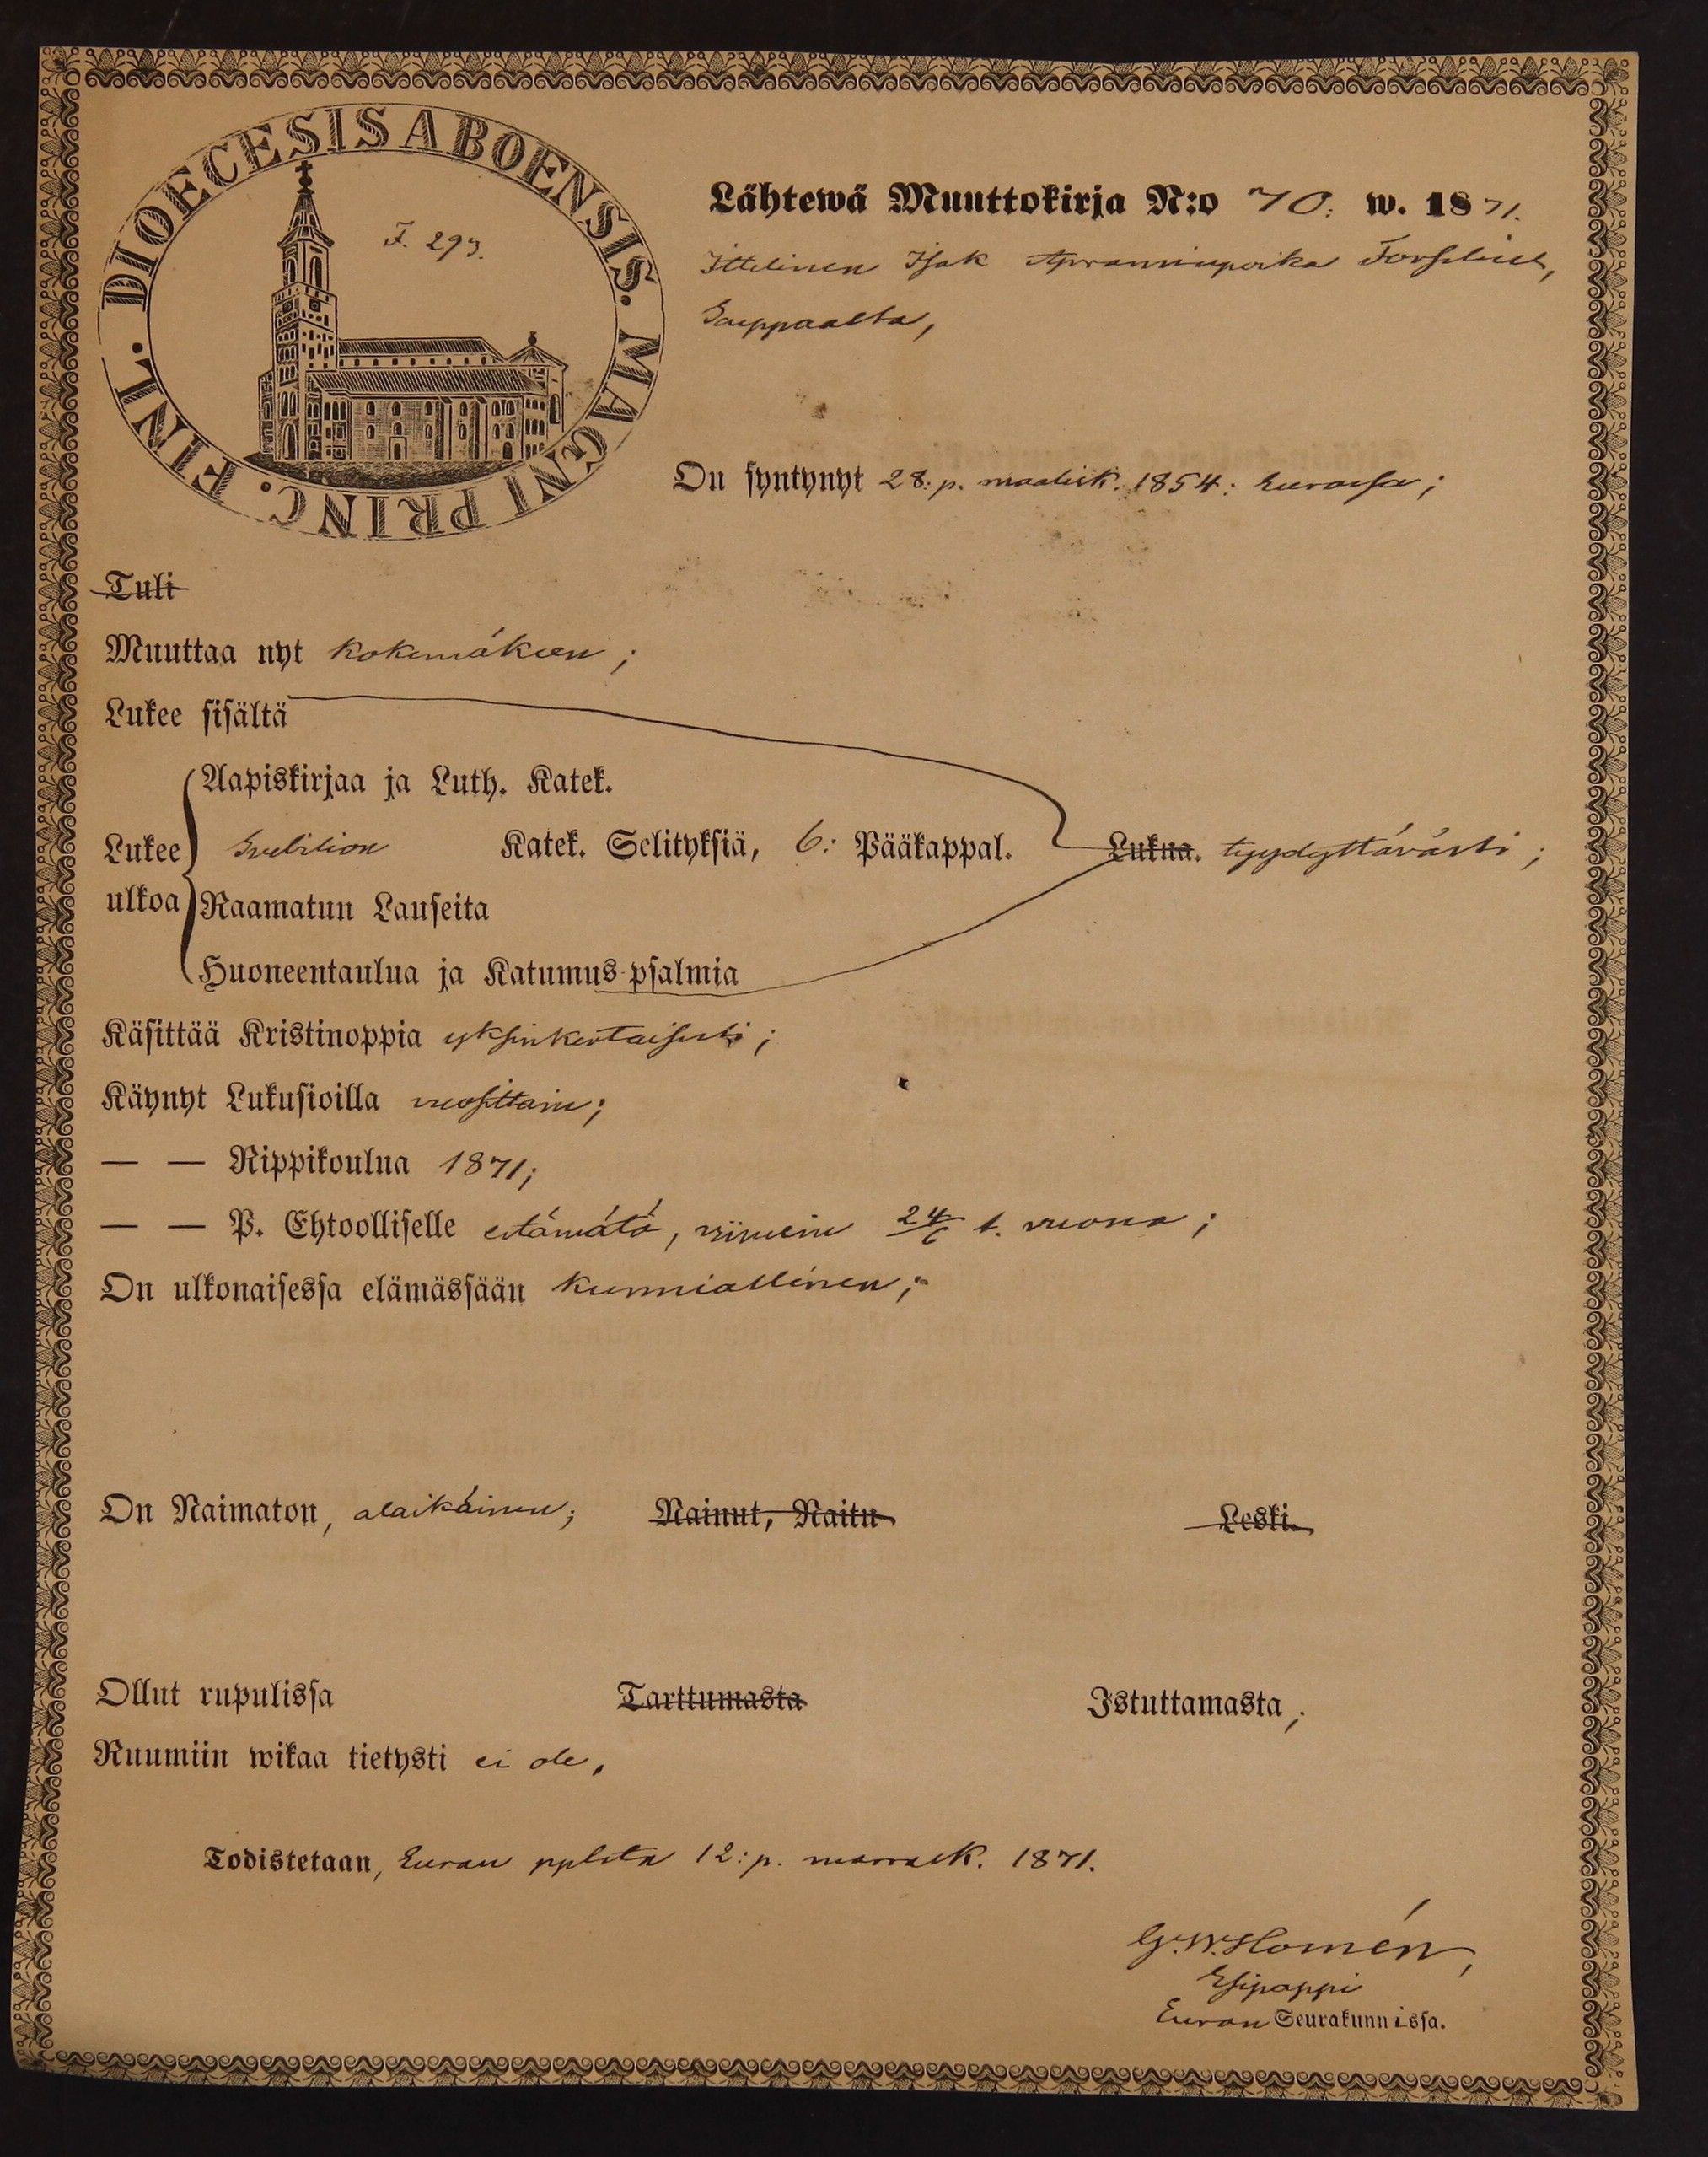 DIOECESIS ABOENSIS. MAGNI PRINC. FINL.
F. 293.
Lähtewä Muuttokirja N:o 70: w. 1871.
Ittelinen Isak Apraminpoika Forsbiel,
Gauppaalta,
On syntynyt 28: p. maalisk. 1854: Eurassa;
Tuli
Muuttaa nyt Kokemäkeen;
Lukee sisältä
Aapiskirjaa ja Luth. Katek.
Lukee Svebilion Katek. Selityksiä, 6: Pääkappal. Lukua. tyydyttävästi;
ulkoa Raamatun Lauseita
Huoneentaulua ja Katumus-psalmia
Käsittää Kristinoppia yksinkertaisesti;
Käynyt Lukusioilla vuosittain;
— — Rippikoulua 1871;
— — P. Ehtoolliselle estämätä, viimein 24/6 t. vuona;
On ulkonaisessa elämässään kunniallinen;
On Naimaton, alaikäinen; Nainut, Naitu Leski.
Ollut rupulissa Tarttumasta Istuttamasta;
Ruumiin wikaa tietysti ei ole.
Todistetaan, Euran pplsta 12: p. marrask. 1871.
G. W. Homén,
Esipappi
Euran Seurakunnissa.